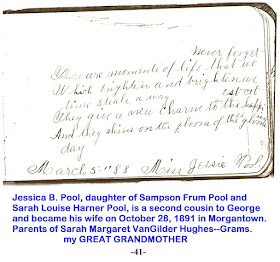 Never forget
There are moments of life that we
Which brighten and brighten as
time steals away
They give a new charm to the happiest
And they shine on the gloom of the gloomiest
day
March 5th 88 Miss Jessie Pool
Jessica B. Pool, daughter of Sampson Frum Pool and
Sarah Louise Harner Pool, is a second cousin to George
and became his wife on October 28, 1891 in Morgantown.
Parents of Sarah Margaret VanGilder Hughes--Grams.
my GREAT GRANDMOTHER
-41-